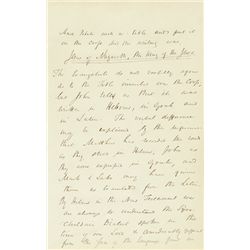 And Pilate wrote a title and put it
on the Cross and the writing was
Jesus of Nazareth, the King of the Jews
The Evangelists do not entirely agree
as to the Title inscribed on the Cross,
but John tells us that it was
written in Hebrew, in Greek
and in Latin. The verbal difference
may be explained by the supposition
that Matthew has recorded the words
as they stood in Hebrew, John as
they were expressed in Greek, and
Mark & Luke may have given
them as translated from the Latin.
By Hebrew in the New Testament we
are always to understand the Syro
Chaldaic Dialect spoken in the
time of our Lord & considerably different
from the of the language found in